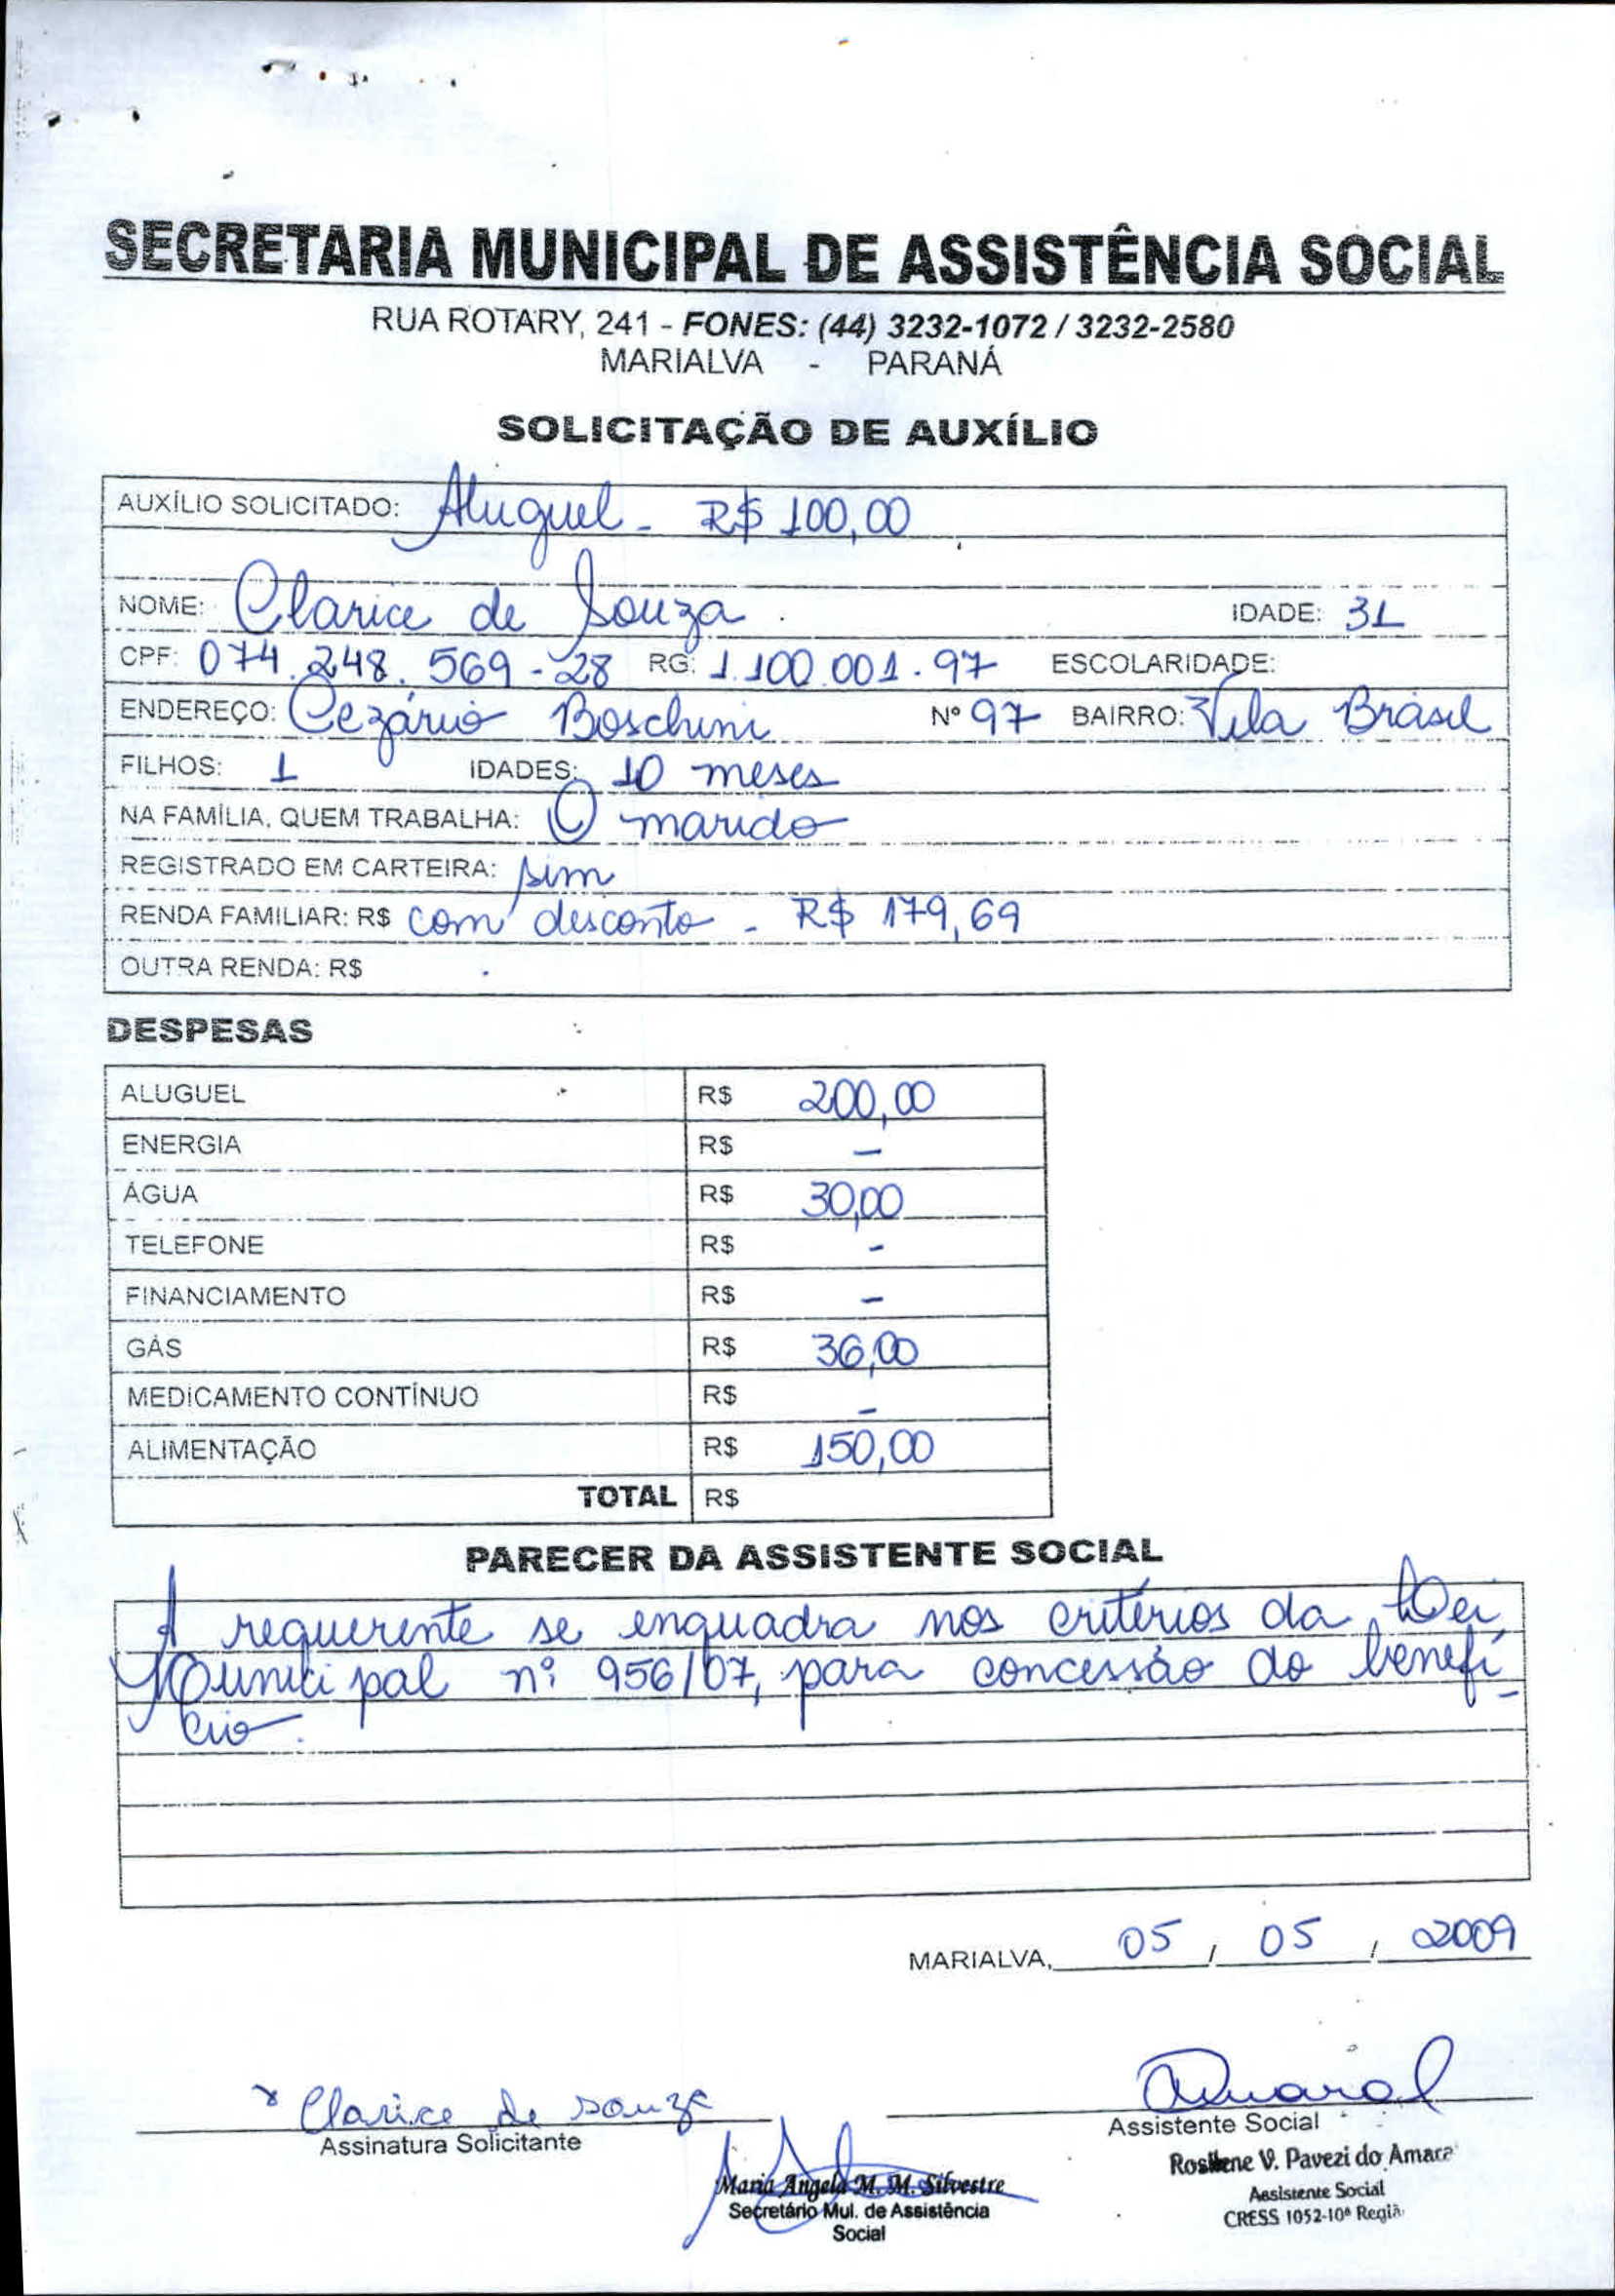 SECRETARIA MUNICIPAL DE ASSISTÊNCIA SOCIAL
RUA ROTARY, 241 - FONES: (44) 3232-1072 / 3232-2580
MARIALVA - PARANÁ
SOLICITAÇÃO DE AUXÍLIO
AUXÍLIO SOLICITADO: Aluguel - R$ 100,00
NOME: Clarice de Souza IDADE: 31
CPF: 074.248.569-28 RG: 1.100.001.97 ESCOLARIDADE:
ENDEREÇO: Cezário Boschini Nº 97 BAIRRO: Vila Brasil
FILHOS: 1 IDADES: 10 meses
NA FAMÍLIA, QUEM TRABALHA: O marido
REGISTRADO EM CARTEIRA: sim
RENDA FAMILIAR: R$ com desconto - R$ 179,69
OUTRA RENDA: R$
DESPESAS
ALUGUEL R$ 200,00
ENERGIA R$ -
ÁGUA R$ 30,00
TELEFONE R$ -
FINANCIAMENTO R$ -
GÁS R$ 36,00
MEDICAMENTO CONTÍNUO R$ -
ALIMENTAÇÃO R$ 150,00
TOTAL R$
PARECER DA ASSISTENTE SOCIAL
A requerente se enquadra nos critérios da Lei
Municipal nº 956/07, para concessão do benefí-
cio.
MARIALVA, 05 / 05 / 2009
x Clarice de souza
Assinatura Solicitante
Amaral
Assistente Social
Rosilene V. Pavezi do Amaral
Assistente Social
CRESS 1052-10ª Região
Maria Angela M. M. Silvestre
Secretário Mul. de Assistência
Social